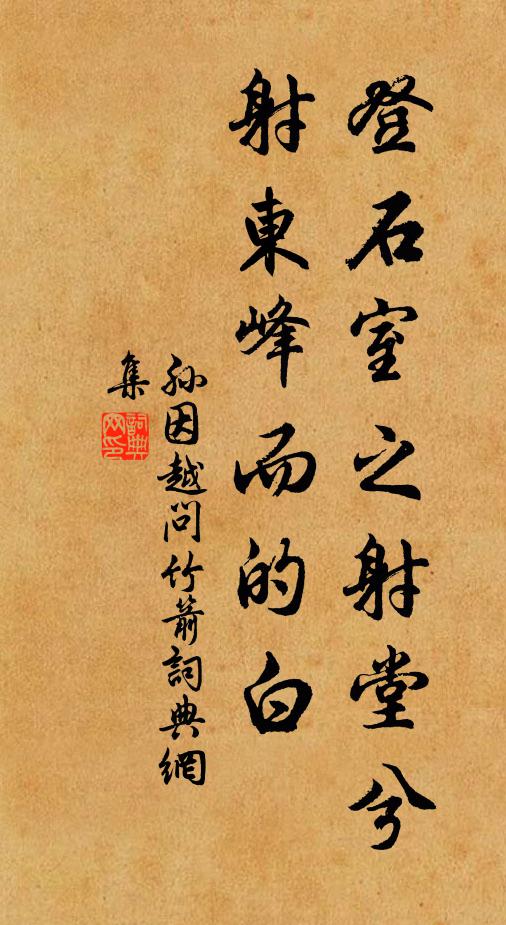 登石室之射堂兮
射東峰而的白
孙因越问竹箭詞典網
集
詞典
网印